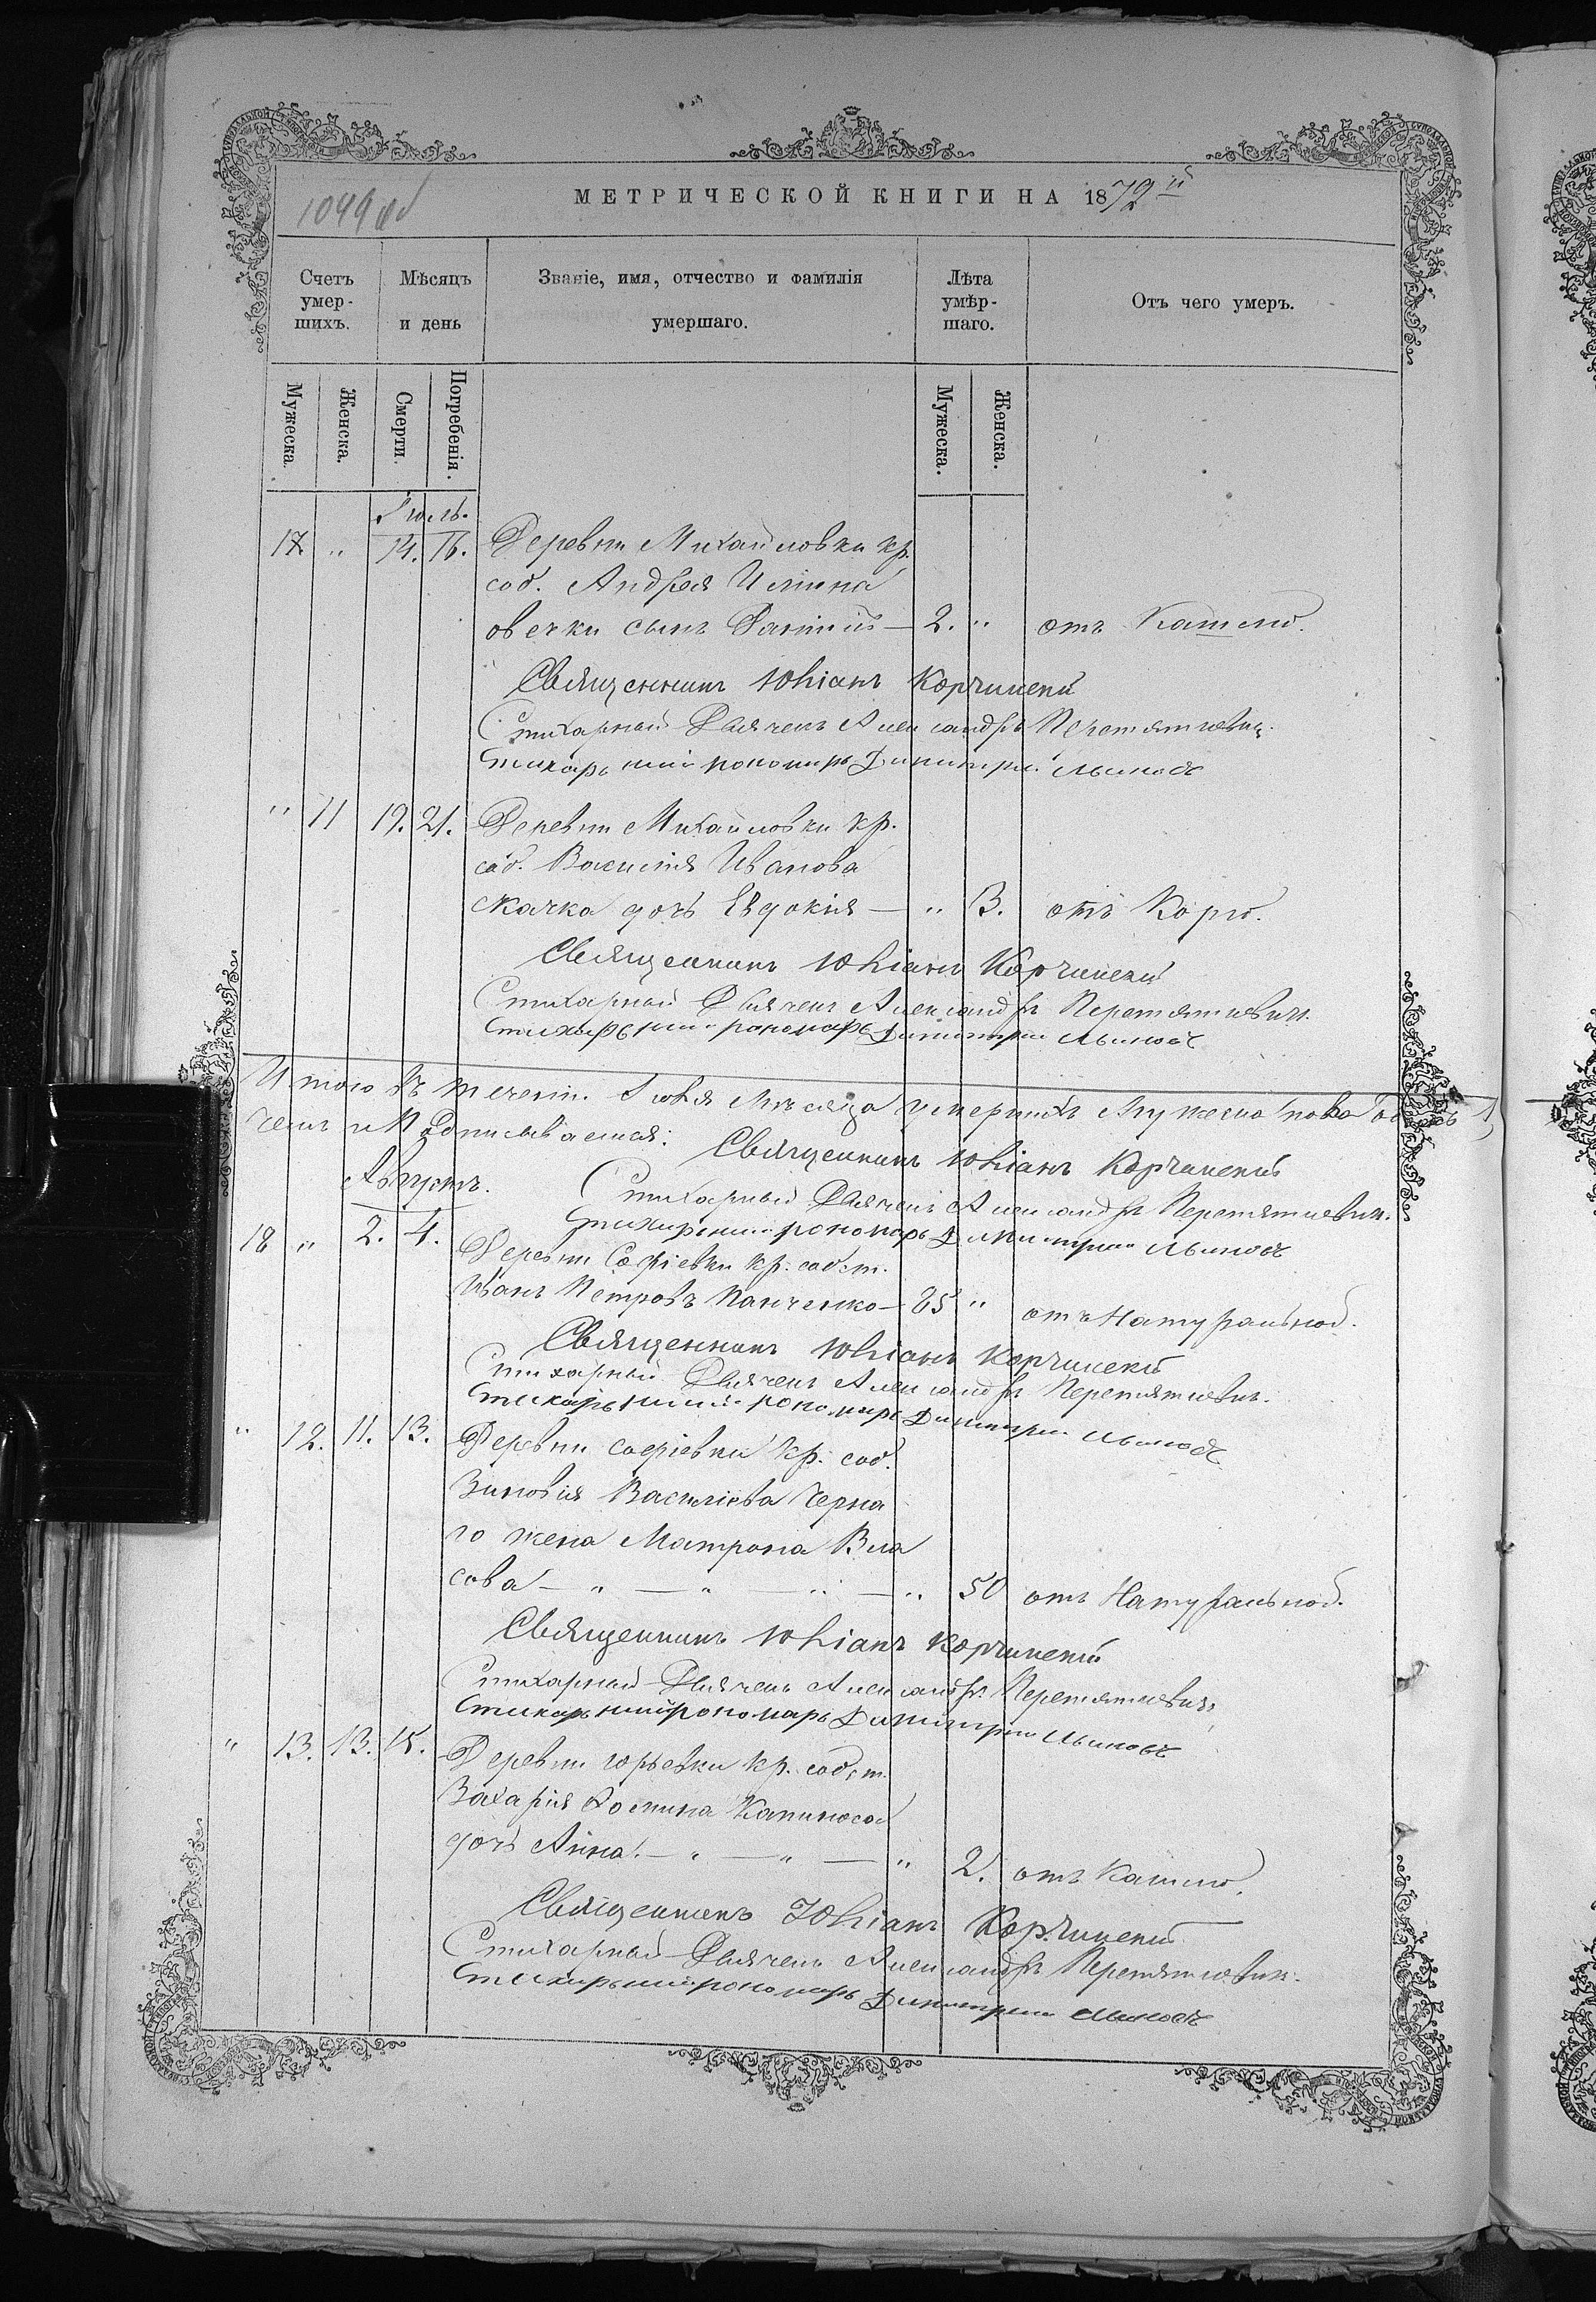 1099 об
МЕТРИЧЕСКОЙ КНИГИ НА 1872й
Счетъ умер-шихъ.
Мѣсяцъ и день
Званіе, имя, отчество и фамилія умершаго.
Лѣта умѣр-шаго.
Отъ чего умеръ.
Мужеска.
Женска.
Смерти.
Погребенія.
Мужеска.
Женска.
Іюль.
17 " 14. 16. Деревни Михайловки кр.
соб. Андрея Илиина
овечки сынъ — 2. " отъ Кашлю.
Священникъ Юліанъ Корчинскій
Стихарный Дьячекъ Александръ Перетятковичъ.
Стихарьний пономарь Димитрій
" 11 19. 21. Деревни Михайловки кр.
соб. Василія Иванова
Скачка дочь Евдокія — " 3. отъ Корю.
Священникъ Юліанъ Корчинскій
Стихарный Дьячекъ Александръ Перетятковичъ.
Стихарьний пономарь Димитрій
Итого въ теченіи Іюля мѣсяца умершихъ Мужеска пола
чемъ и Подписываемся: Священникъ Юліанъ Корчинскій
Августъ. Стихарный Дьячекъ Александръ Перетятковичъ.
Стихарьний пономарь Димитрій
18 " 2. 4. Деревни Софіевки кр. собст.
Иванъ Петровъ Панченко — 85 " отъ Натуральной.
Священникъ Юліанъ Корчинскій
Стихарный Дьячекъ Александръ Перетятковичъ.
Стихарьний пономарь Димитрій
" 12. 11. 13. Деревни Софіевки кр. соб.
Зиновія Василіева Черна
го жена Матрона Вла
сова — " — " — " — " 50 отъ Натуральной.
Священникъ Юліанъ Корчинскій
Стихарный Дьячекъ Александръ Перетятковичъ
Стихарьний пономарь Димитрій
" 13. 13. 15. Деревни Юрьевки кр. собст.
Захарія Фомина Капиноса
дочь Анна. — " — " — " 2. отъ Кашлю.
Священникъ Юліанъ Корчинскій
Стихарный Дьячекъ Александръ Перетятковичъ.
Стихарьний пономарь Димитрій